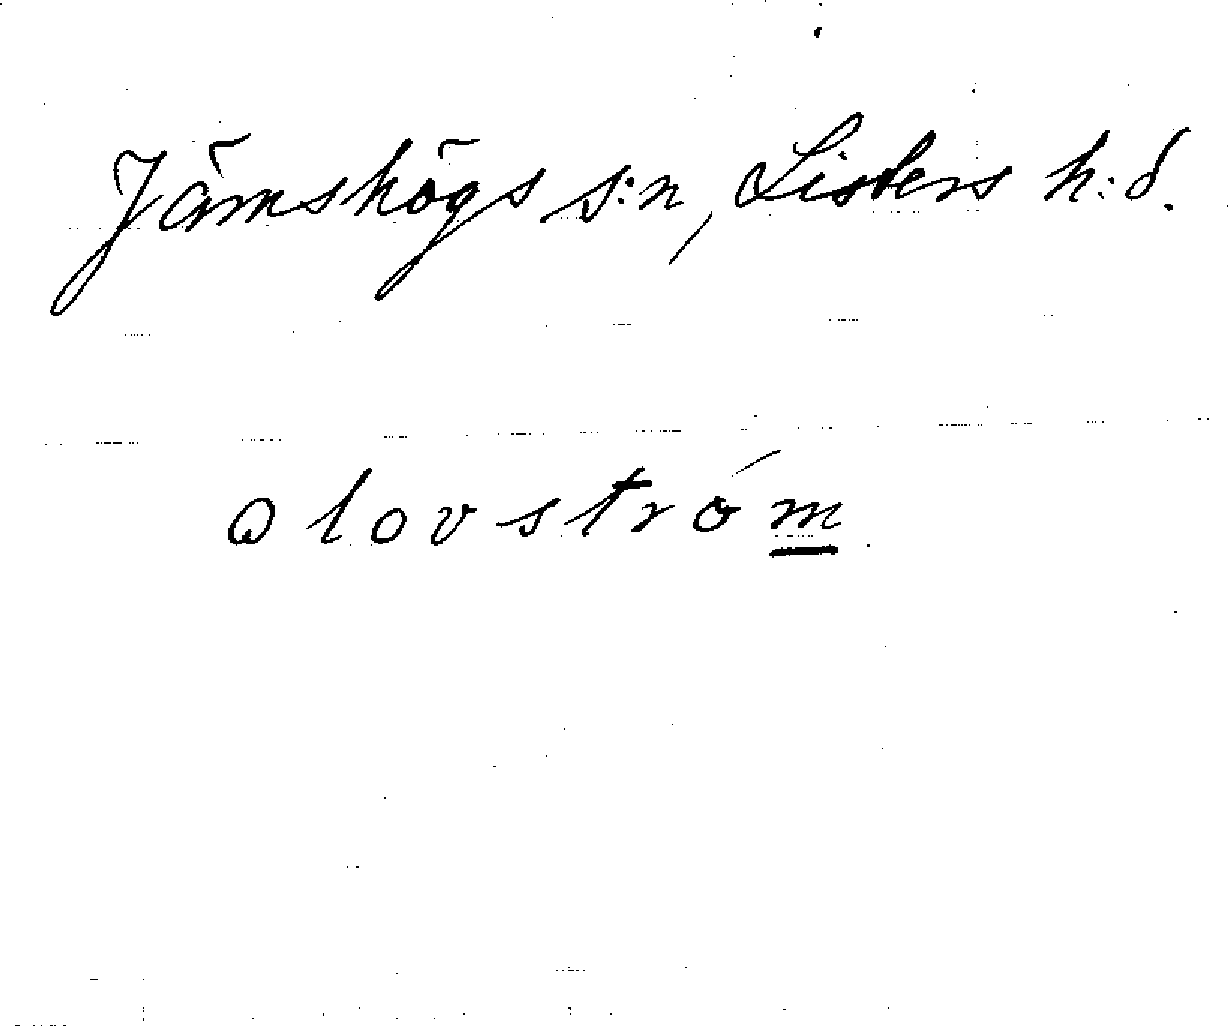 Jämshögs s:n, Listers h:d.
olovström